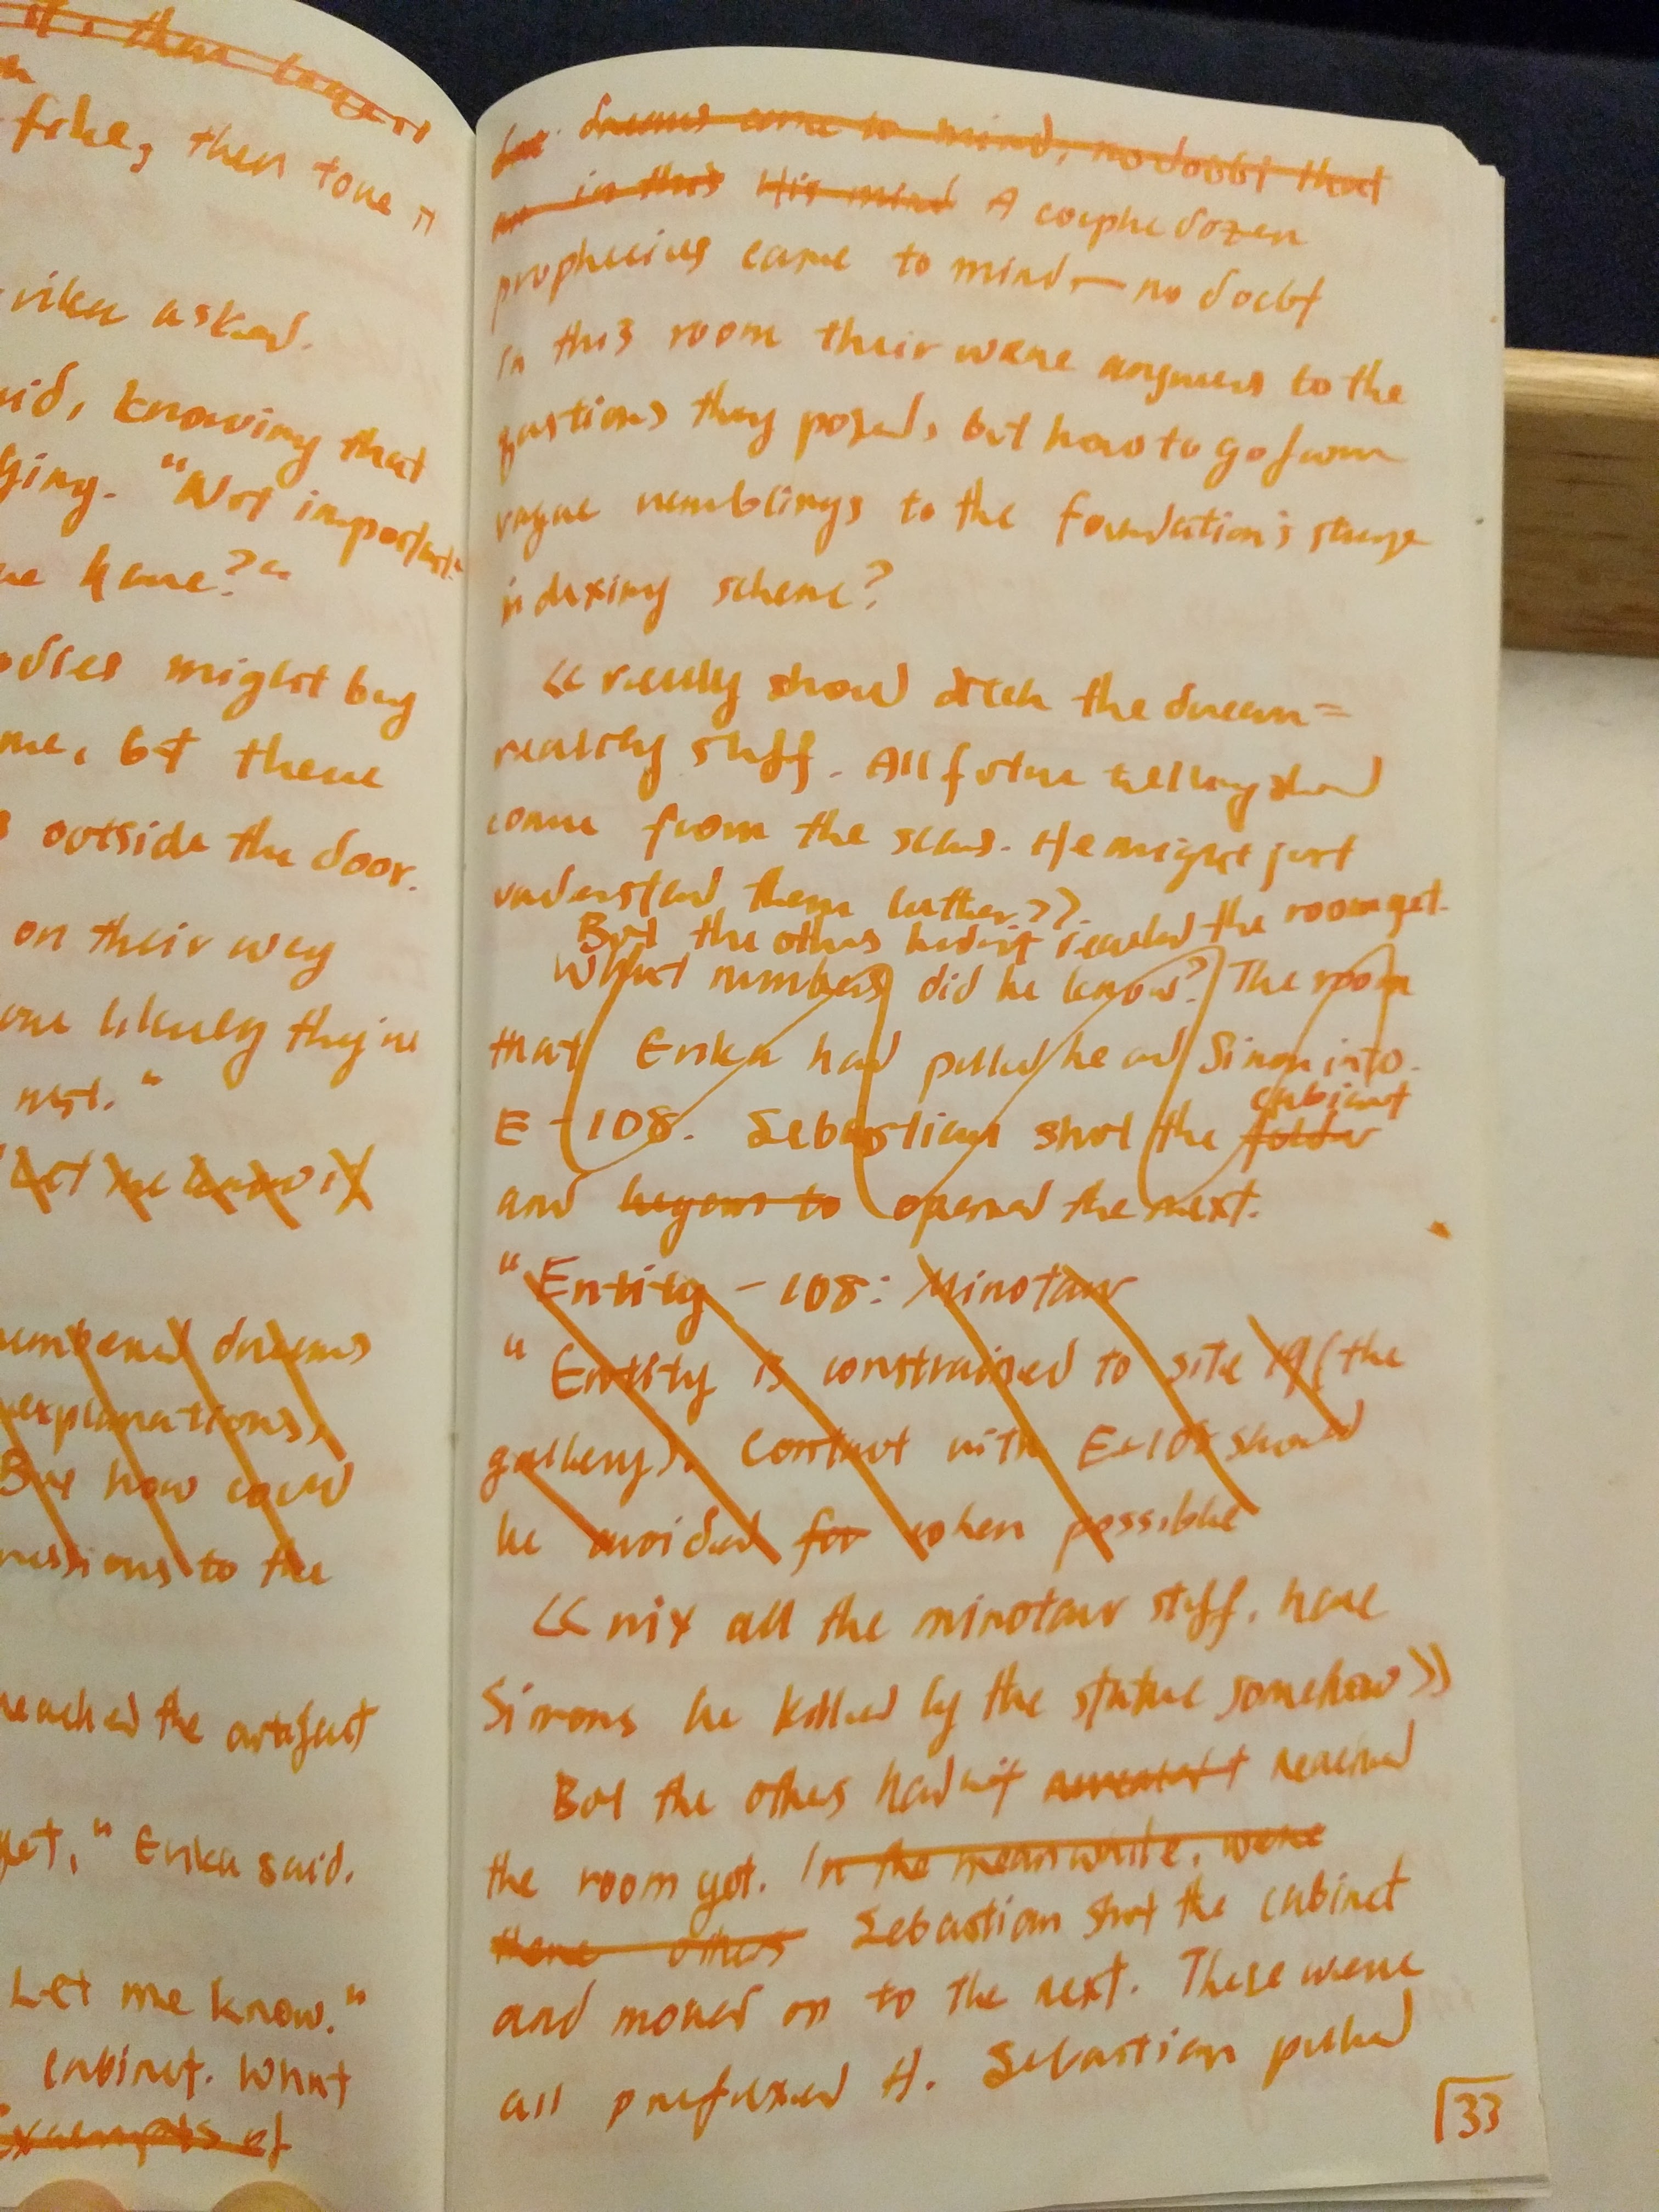 it, then
fake, then tone
asked.
knowing that
"Not important."
have?"
might bug
me, bt there
outside the door.
on their way
likely they're
rest."
Let me know it
dreams
explanations,
But how could
to the
reached the artifact
yet," Erika said.
Let me know."
cabinet. What
Excerpts of
dreams come to mind, no doubt that
in this His mind A couple dozen
prophecies came to mind — no doubt
in this room their were answers to the
questions they posed, but how to go from
vague remblings to the foundation's strage
indexing scheme?
<< really shoud ditch the dream=
reality stuff. All future telling shoud
come from the seas. He might just
understand them better>>.
But the others hadn't reached the room yet.
What numbers did he know? The room
that Erika had pulled he and Simon into.
cabinet
E-108. Sebastian shut the folder
and began to opened the next.
"Entity - 108: Minotaur
"Entity is constrained to site 19 (the
gallery). Contact with E-108 shoud
be avoided for when possible
<< nix all the minotaur stuff, have
Simons be killed by the statue somehow >>
But the others hadn't reached
the room yet. In the meanwhile, were
there others Sebastian shut the cabinet
and moved on to the next. These were
all prefixed H. Sebastian pulled
33